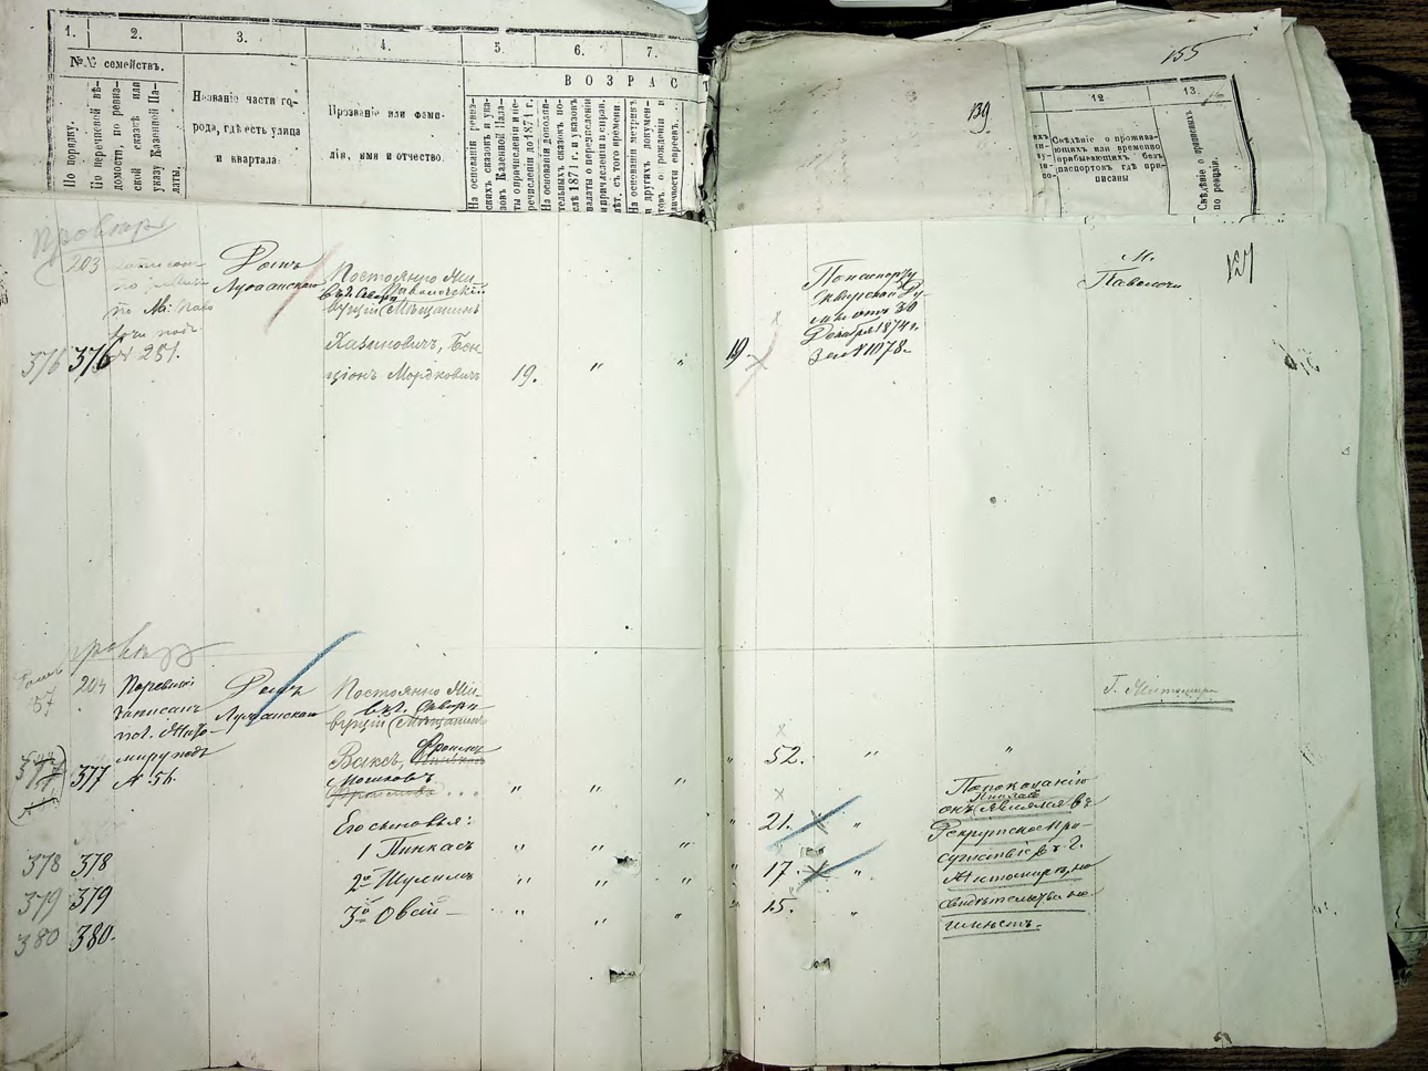 1.
2.
3.
4.
5.
6.
7.
№№ семействъ.
По порядку.
По перечневой вѣ-
домости, по ревиз-
ской сказкѣ или
указу Казенной Па-
латы.
Названіе части го-
рода, гдѣ есть улица
и кварталъ.
Прозваніе или фами-
лія, имя и отчество.
ВОЗРАСТ
На основаніи ревиз-
скихъ сказокъ и ука-
зовъ Казенной Пала-
ты о причисленіи и пе-
речисленіи до 1871 г.
На основаніи дополни-
тельныхъ сказокъ по-
слѣ 1871 г. и указовъ
палаты о перечисленіи
и причисленіи и справ.
лѣт. съ того времени.
На основаніи метрикъ
и другихъ докумен-
товъ о рожденіи и
личности евреевъ.
139
155
12
13.
Свѣдѣніе о прожива-
ющихъ или временно
прибывающихъ безъ
паспортовъ гдѣ при-
писаны
Свѣдѣніе о припискахъ
по ревизіи.
203
376 376
№ 251.
Домъ
Лугганскаго
Постоянно Жи-
въ г. Сквирѣ Паволочскій
вущій (Мѣщанинъ
Хазиновичъ, Бен-
ціонъ Мордковичъ
19. " "
19.
По паспорту
Сквирской Ду-
мы отъ 30
Декабря 1874 г.
за № 1078.
М.
Паволочи
157
57
204
По ревизіи
записанъ
по г. Жито-
миру подъ
№ 56.
377
Домъ
Лугганскаго
Постоянно Жи-
въ г. Сквирѣ
вущій (Мѣщанинъ
Ваксъ, Фроимъ
Мошковъ
" " "
52. " "
Г. Житомира
Его сыновья:
378 378
1 Пинкасъ " " "
21. "
379 379
2й Шулимъ " " "
17. "
380 380.
3й Овсій — " " "
15. "
По показанію
онъ Пинкасъ явился въ
Рекрутское при-
сутствіе въ г.
Житомирѣ, но
свидѣтельства не
имѣетъ.